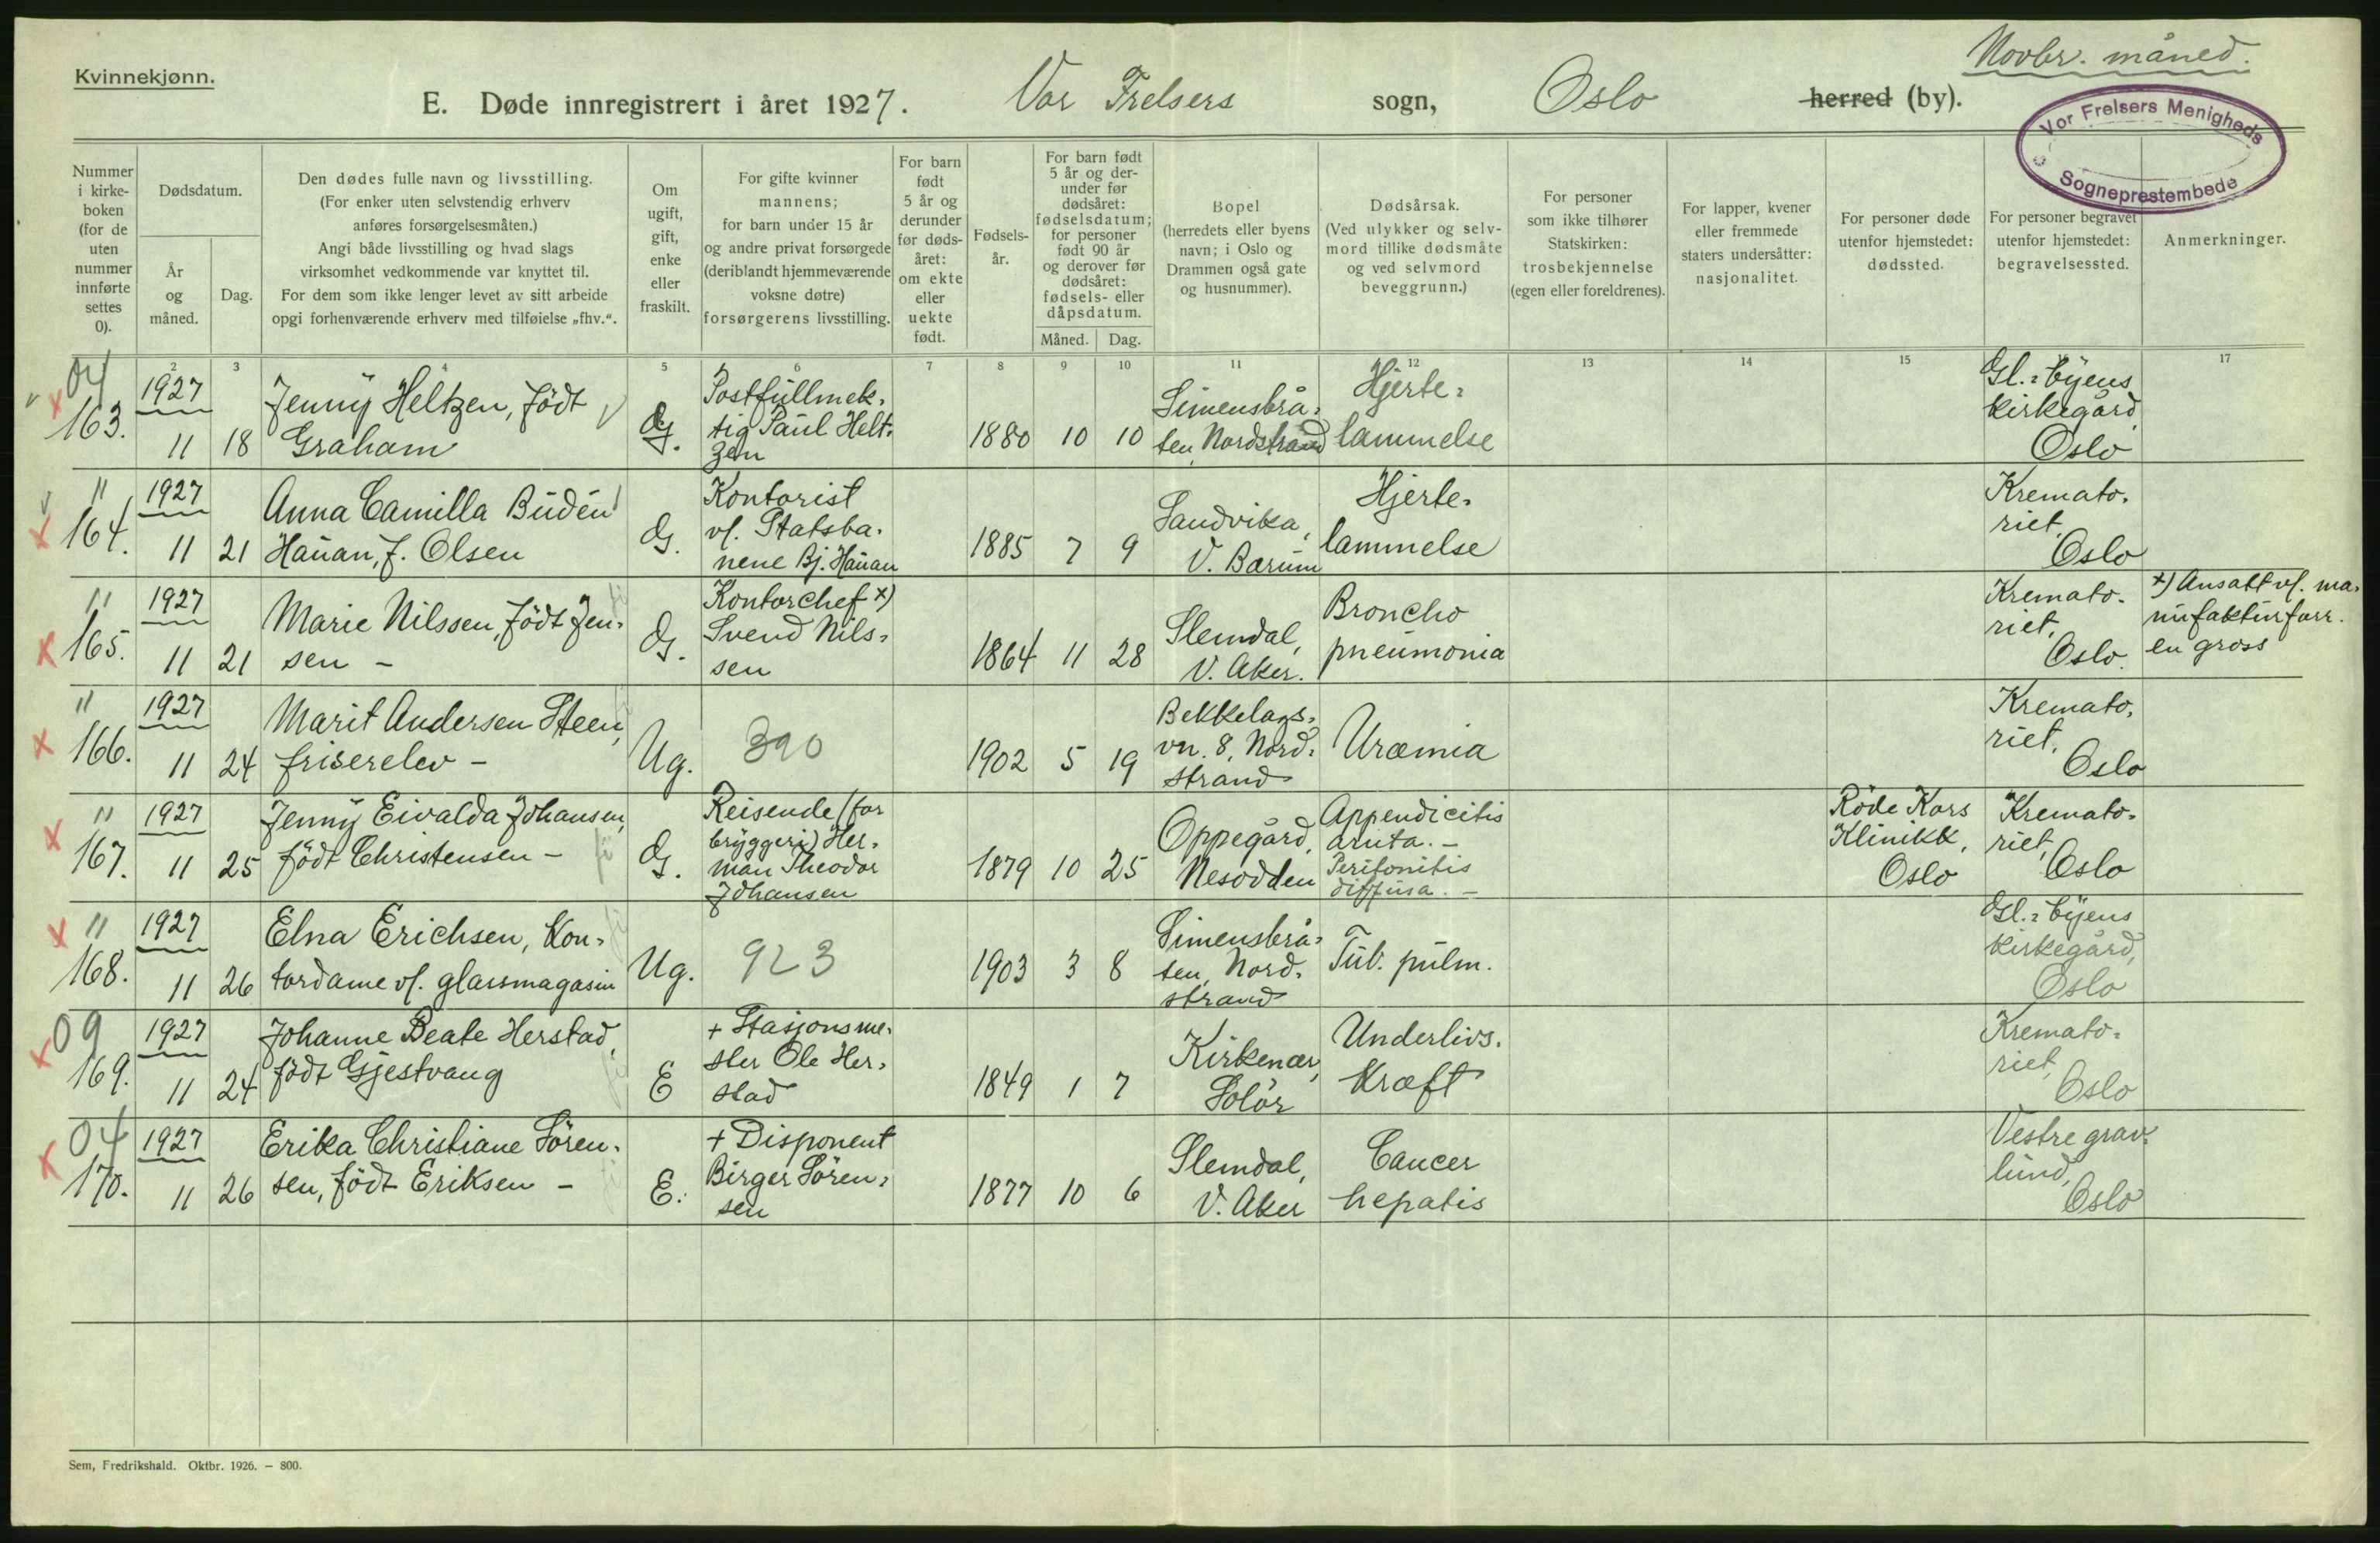 Kvinnekjønn.
Novbr. måned.
E. Døde innregistrert i året 1927. Vor Frelsers sogn, Oslo herred (by).
Vor Frelsers Menigheds
Sogneprestembede
Nummer
i kirke-
boken
(for de
uten
nummer
innførte
settes
0).
Dødsdatum.
År
og
måned.
Dag.
Den dødes fulle navn og livsstilling.
(For enker uten selvstendig erhverv
anføres forsørgelsesmåten.)
Angi både livsstilling og hvad slags
virksomhet vedkommende var knyttet til.
For dem som ikke lenger levet av sitt arbeide
opgi forhenværende erhverv med tilføielse „fhv.“.
Om
ugift,
gift,
enke
eller
fraskilt.
For gifte kvinner
mannens;
for barn under 15 år
og andre privat forsørgede
(deriblandt hjemmeværende
voksne døtre)
forsørgerens livsstilling.
For barn
født
5 år og
derunder
før døds-
året:
om ekte
eller
uekte
født.
Fødsels-
år.
For barn født
5 år og der-
under før
dødsåret:
fødselsdatum;
for personer
født 90 år
og derover før
dødsåret:
fødsels- eller
dåpsdatum.
Måned. Dag.
Bopel
(herredets eller byens
navn; i Oslo og
Drammen også gate
og husnummer).
Dødsårsak.
(Ved ulykker og selv-
mord tillike dødsmåte
og ved selvmord
beveggrunn.)
For personer
som ikke tilhører
Statskirken:
trosbekjennelse
(egen eller foreldrenes).
For lapper, kvener
eller fremmede
staters undersåtter:
nasjonalitet.
For personer døde
utenfor hjemstedet:
dødssted.
For personer begravet
utenfor hjemstedet:
begravelsessted.
Anmerkninger.
2 3 4 5 6 7 8 9 10 11 12 13 14 15 17
04
163.
1927
11 18
Jenny Heltzen, født
Graham
G.
Postfullmek-
tig Paul Helt-
zen
1880 10 10
Simensbrå-
ten, Nordstrand
Hjerte-
lammelse
Gl. byens
kirkegård
Oslo
"
164.
1927
11 21
Anna Camilla Budén
Hauan, f. Olsen
G.
Kontorist
v/. Statsba-
nene Bj. Hauan
1885 7 9
Sandvika,
V. Bærum
Hjerte-
lammelse
Kremato-
riet,
Oslo
"
165.
1927
11 21
Marie Nilssen, født Jen-
sen -
G.
Kontorchef x)
Svend Nils-
sen
1864 11 28
Slemdal,
V. Aker.
Broncho
pneumonia
Kremato-
riet,
Oslo.
x) Ansatt v/. ma-
nufakturforr.
en gross
"
166.
1927
11 24
Marit Andersen Steen,
friserelev -
Ug.
390
1902 5 19
Bekkelags-
vn. 8, Nord-
strand
Uræmia
Kremato-
riet,
Oslo
"
167.
1927
11 25
Jenny Eivalda Johansen,
født Christensen -
G.
Reisende (for
bryggeri) Her-
man Theodor
Johansen
1879 10 25
Oppegård,
Nesodden
Appendicitis
acuta. -
Peritonitis
diffusa. -
Røde Kors
Klinikk,
Oslo
Kremato-
riet,
Oslo
"
168.
1927
11 26
Elna Erichsen, Kon-
tordame v/. glassmagasin
Ug.
923
1903 3 8
Simensbrå-
ten, Nord-
strand
Tub. pulm.
Gl. byens
kirkegård,
Oslo
09
169.
1927
11 24
Johanne Beate Herstad,
født Gjestvang
E
+ Stasjonsme-
ster Ole Her-
stad
1849 1 7
Kirkenær,
Solør
Underlivs-
kræft
Kremato-
riet,
Oslo
04
170.
1927
11 26
Erika Christiane Søren-
sen, født Eriksen -
E.
+ Disponent
Birger Søren-
sen
1877 10 6
Slemdal,
V. Aker
Cancer
hepatis
Vestre grav-
lund,
Oslo
Sem, Fredrikshald. Oktbr. 1926. — 800.